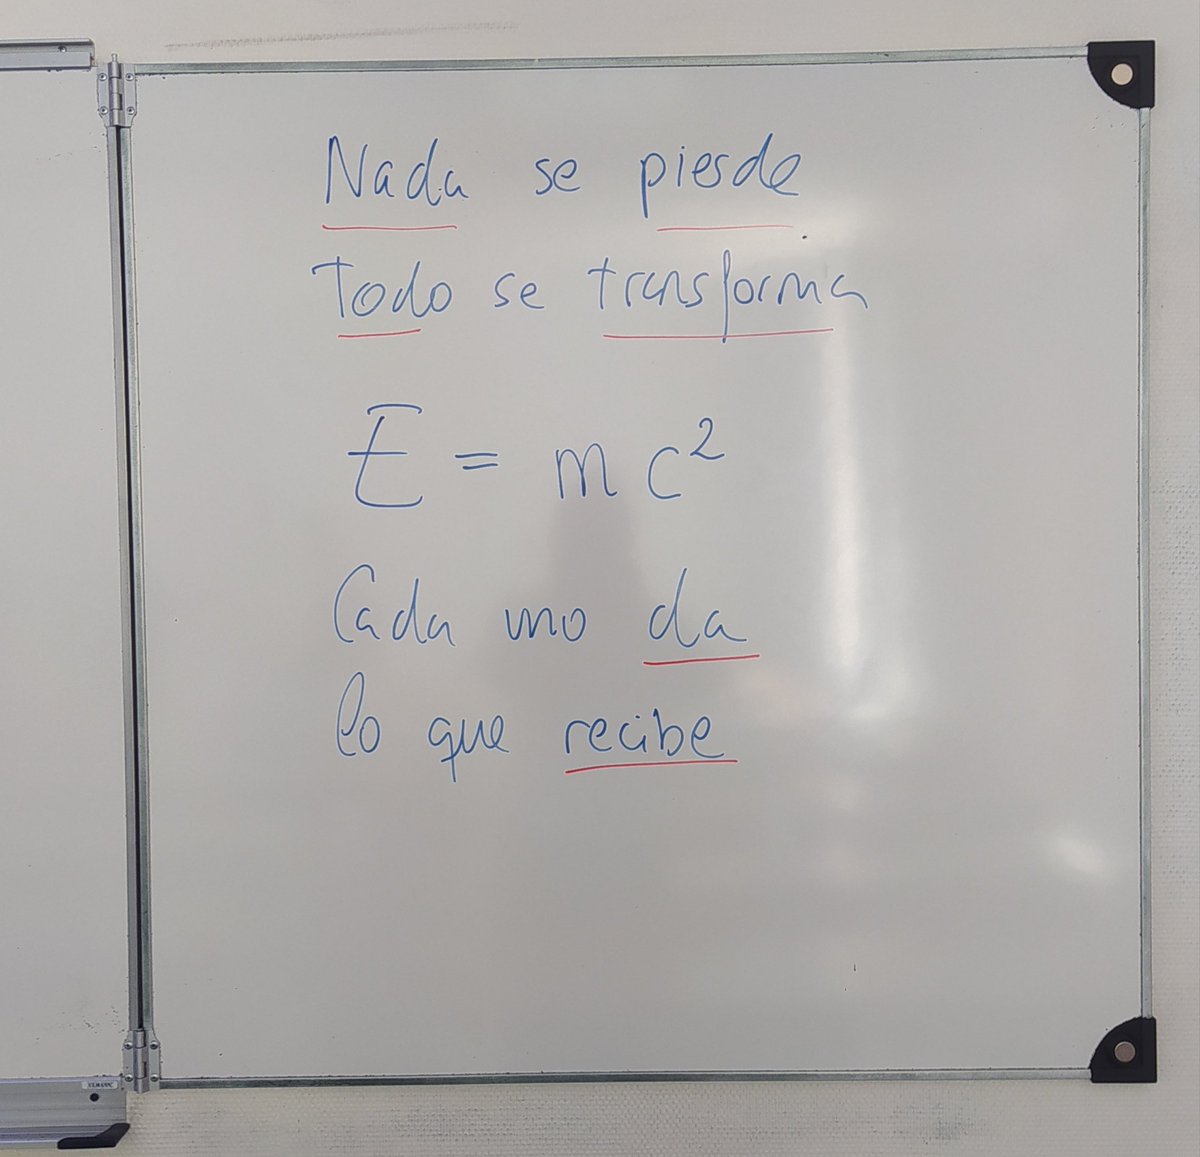 Nada se pierde
Todo se transforma
E = mc²
Cada uno da
lo que recibe